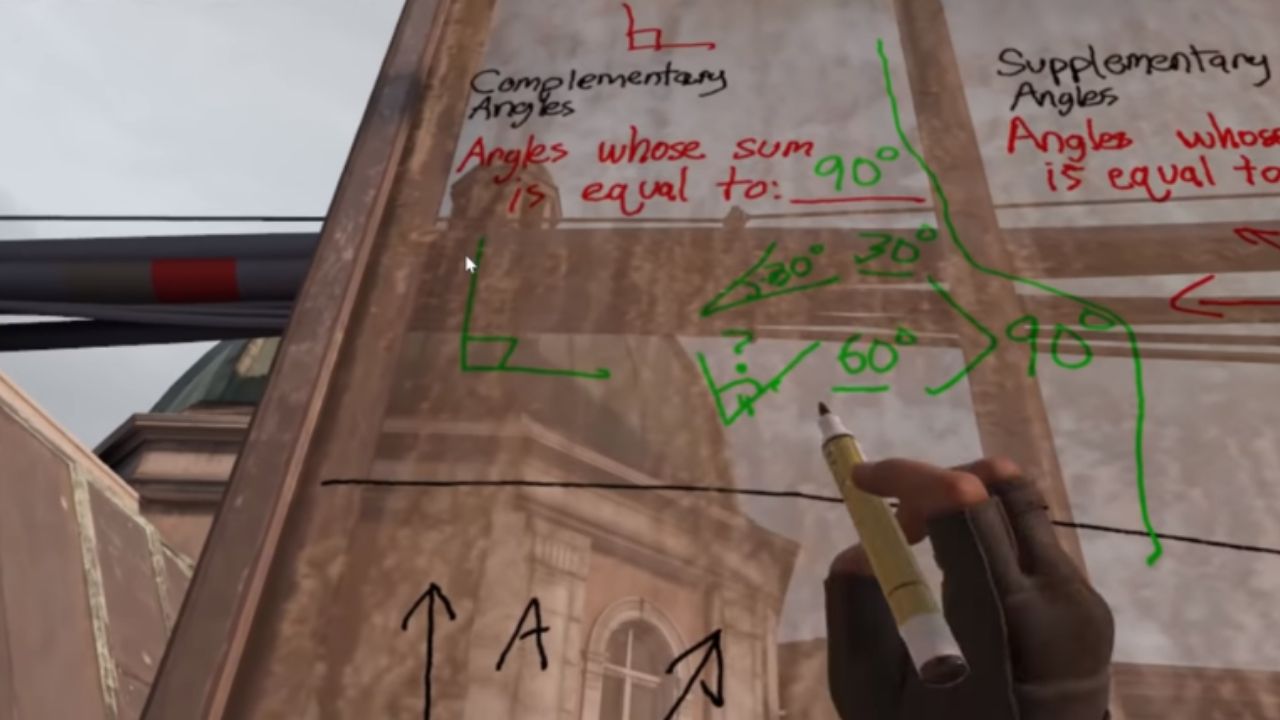 Complementary
Angles
Angles whose sum
is equal to: 90°
30° 30°
?
60°
90°
Supplementary
Angles
Angles whose
is equal to
A